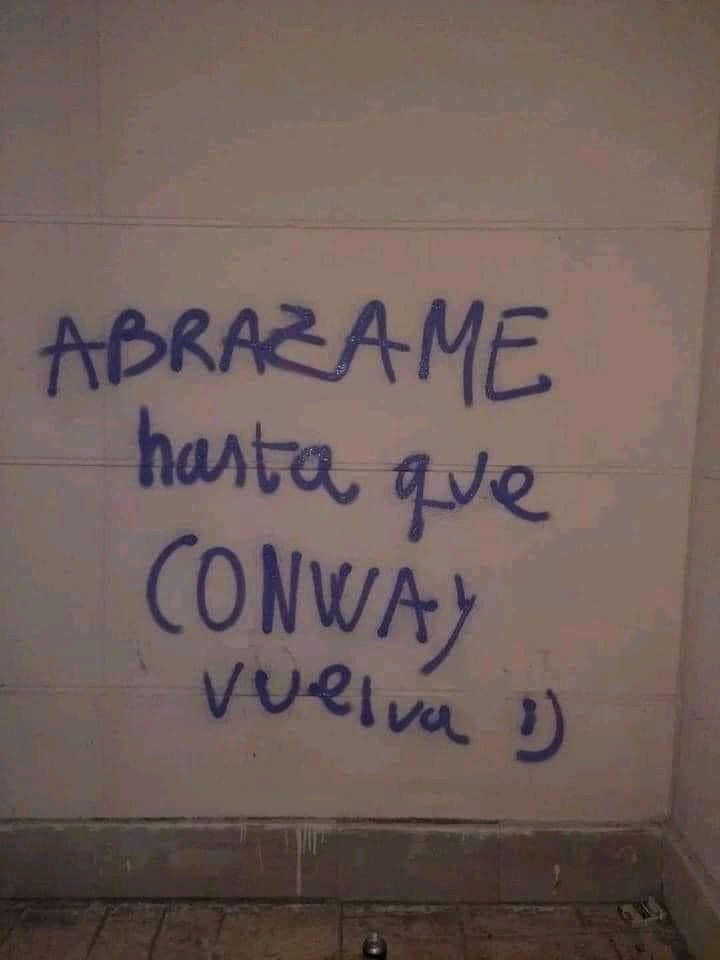 ABRAZAME
hasta que
CONWAY
vuelva :)